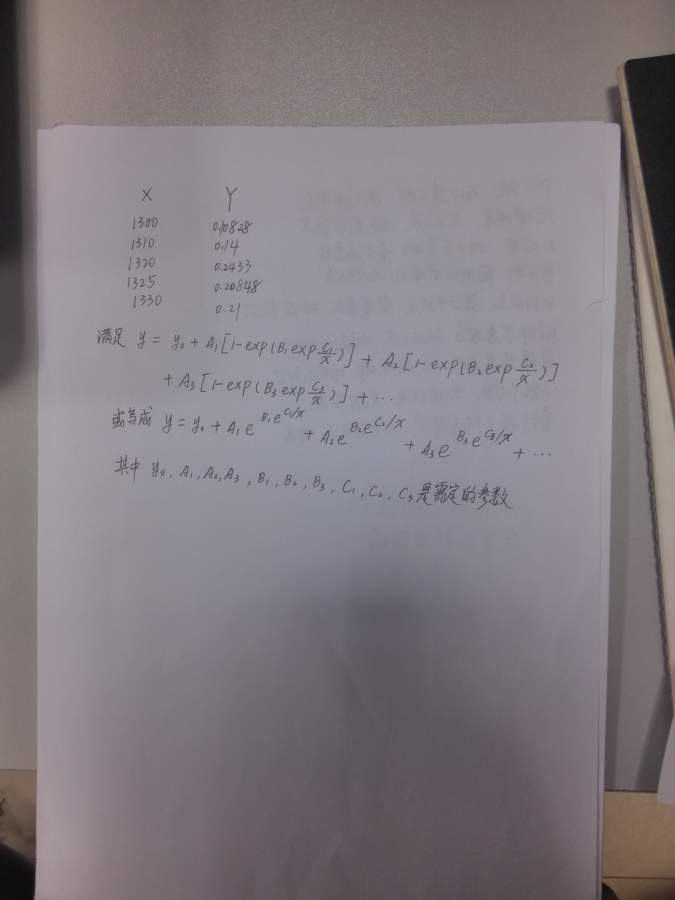 X Y
1300 0.10828
1310 0.14
1320 0.2433
1325 0.20848
1330 0.21
满足 y = y₀ + A₁[1-exp(B₁exp C₁/x)] + A₂[1-exp(B₂exp C₂/x)]
+ A₃[1-exp(B₃exp C₃/x)] + ...
或写成 y = y₀ + A₁e^B₁e^C₁/x + A₂e^B₂e^C₂/x + A₃e^B₃e^C₃/x + ...
其中 y₀、A₁,A₂,A₃,B₁、B₂、B₃、C₁、C₂、C₃是需定的参数